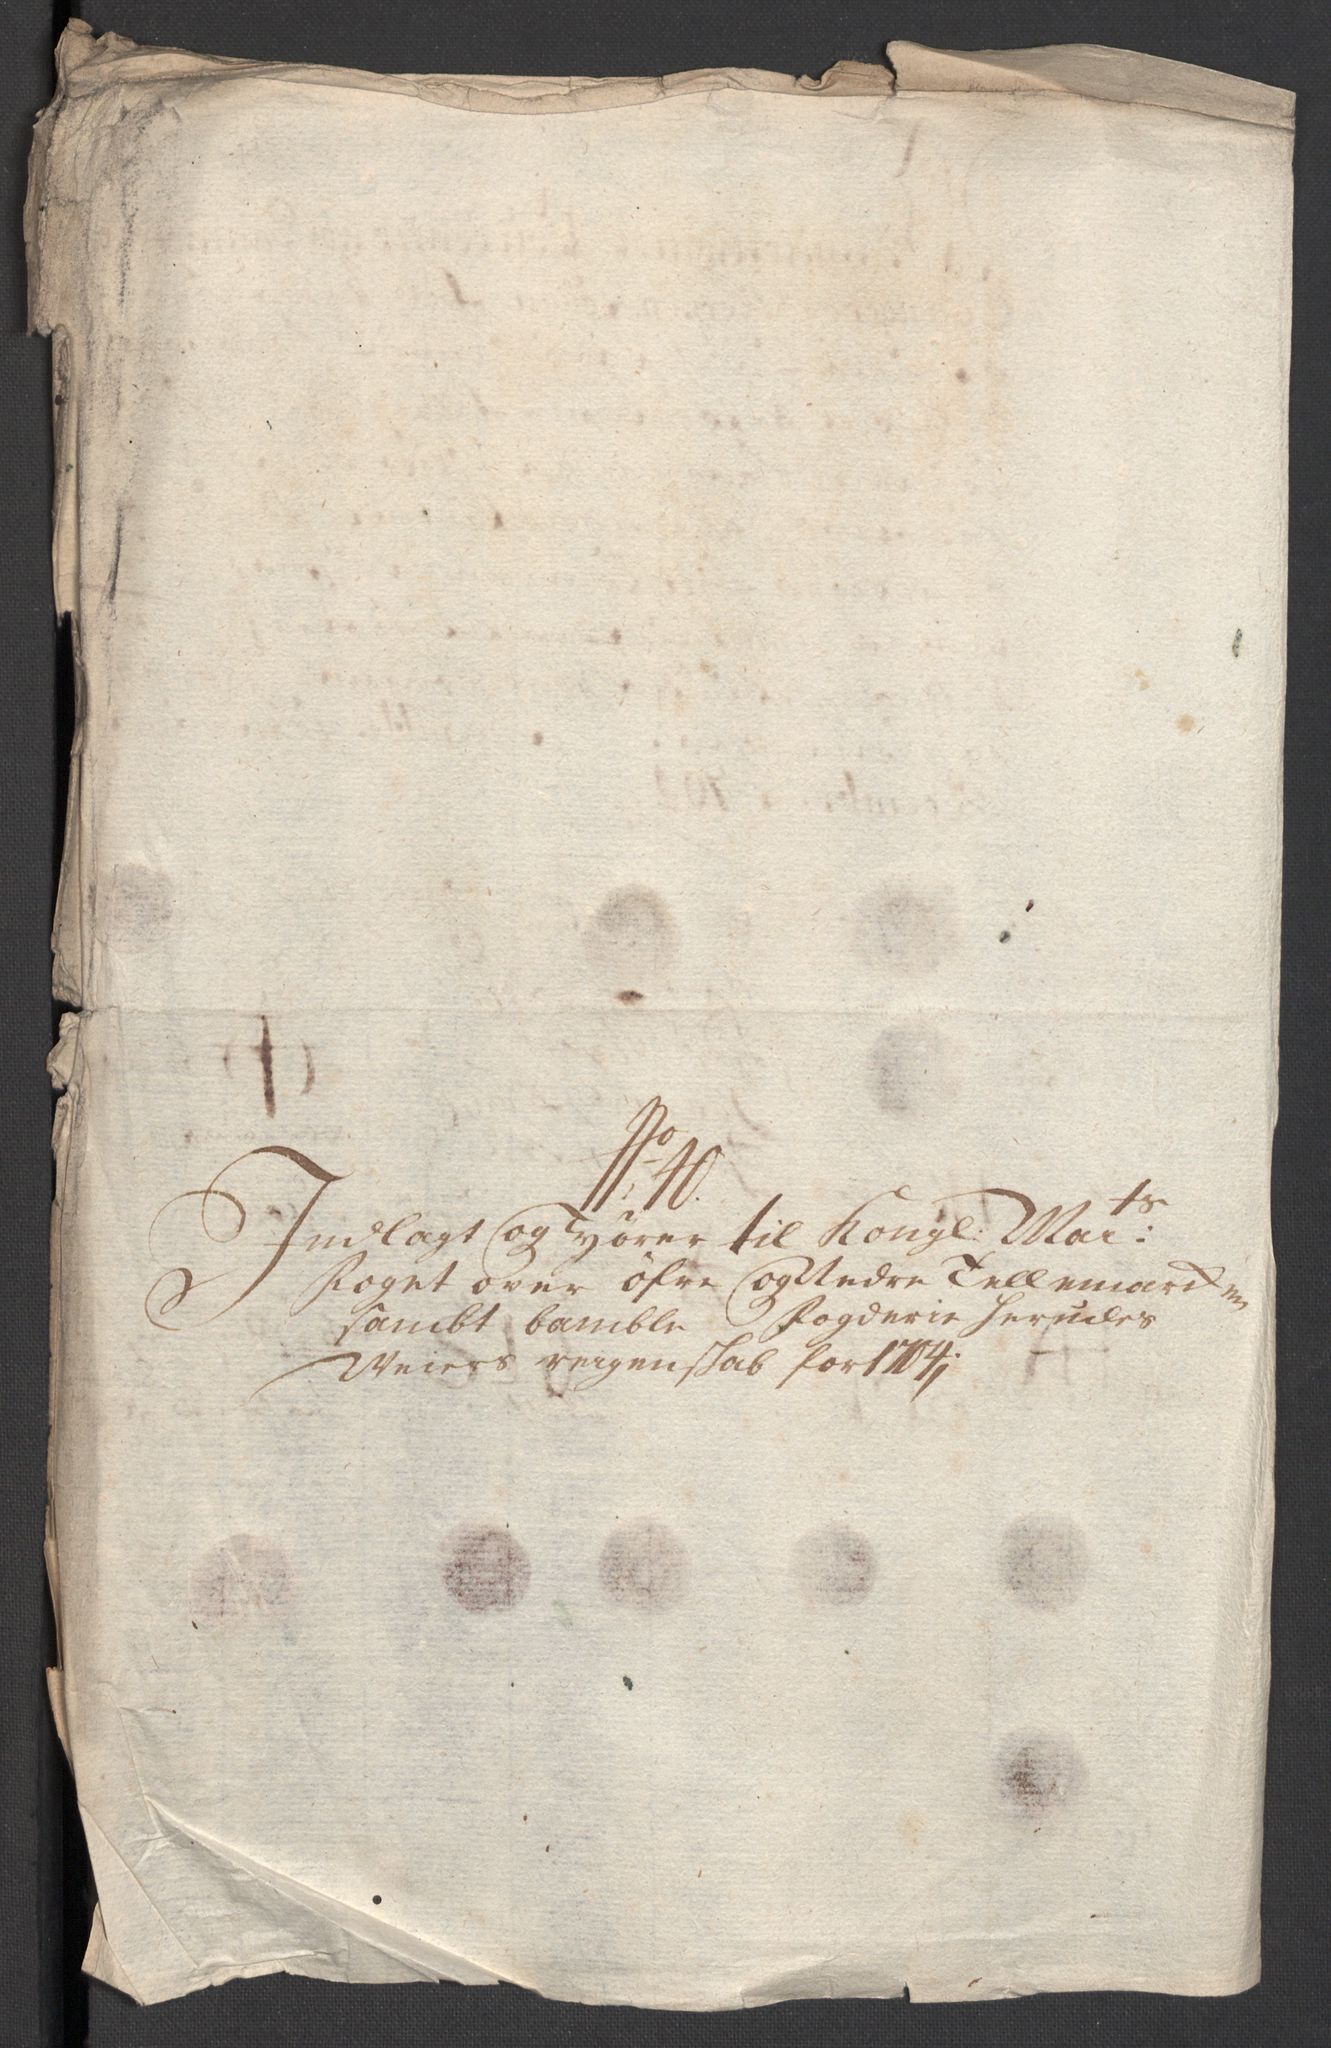 No 40.
Indlagt og hörer til Kongl: Mai:ts
Foget over öfre og Nedre Tellemarcken
sambt bamble Fogderie
Weiers reigenskab for 1704